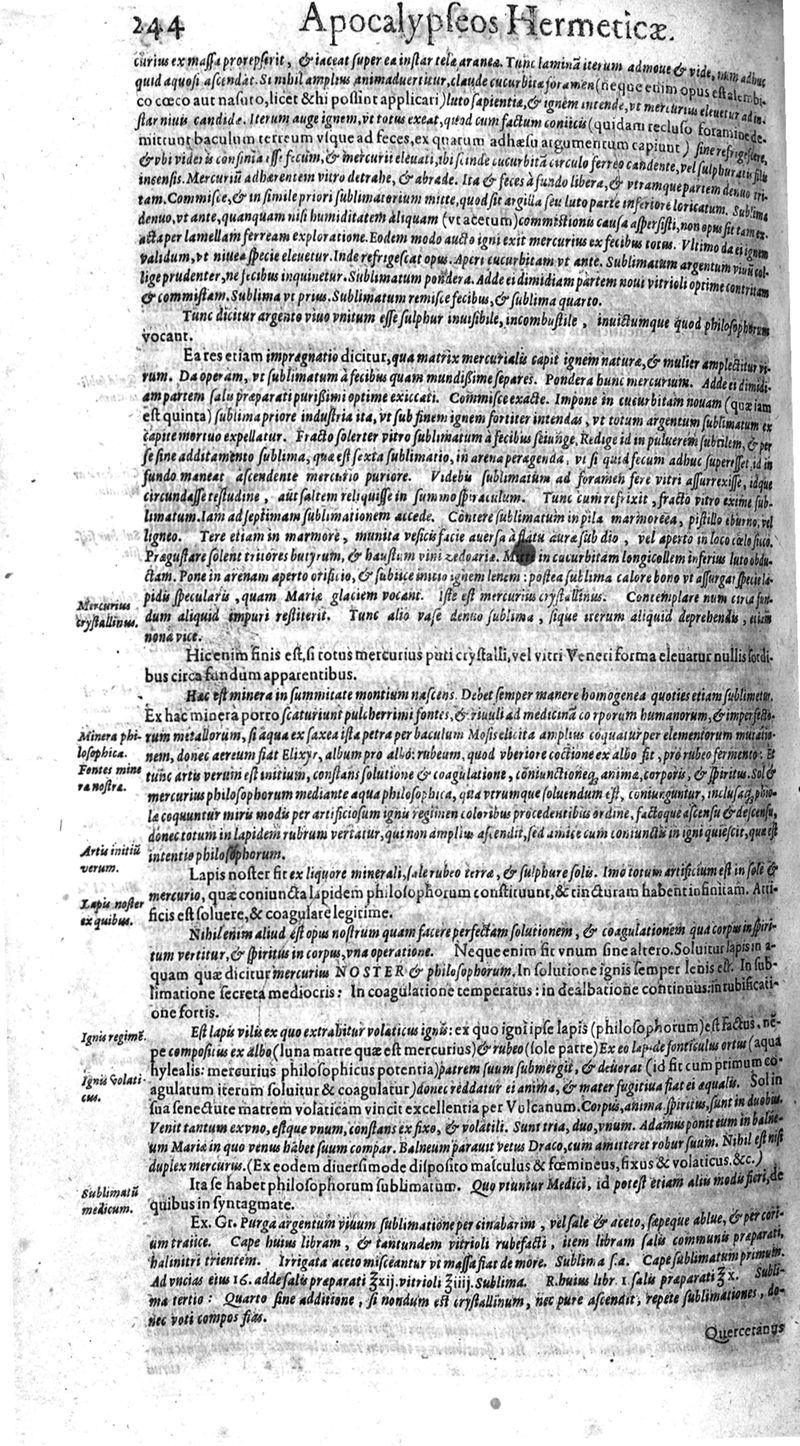 244 Apocalypseos Hermeticæ.
curius ex massa prorepserit, & iaceat super ea instar telæ araneæ. Tunc laminā iterum admoue & vide, num adhuc
quid aquosi ascendat. Si nihil amplius animaduertitur, claude cucurbitæ foramen (neque enim opus est alembi-
co cœco aut nasuto, licet & hi possint applicari) luto sapientiæ, & ignem intende, vt mercurius eleuetur ad in-
star niuis candidæ. Iterum auge ignem, vt totus exeat, quod cum factum coniicis (quidam recluso foramine de-
mittunt baculum terreum vsque ad feces, ex quarum adhæsu argumentum capiunt) sine refrigescere,
& vbi videris confinia esse fecum, & mercurii eleuati, ibi scinde cucurbitā circulo ferreo candente, vel sulphuratis filis
incensis. Mercuriū adhærentem vitro detrahe, & abrade. Ita & feces à fundo libera, & vtramque partem denuo tri-
tam. Commisce, & in simile priori sublimatorium mitte, quod sit argilla seu luto parte inferiore loricatum. Sublima
denuo, vt ante, quanquam nisi humiditatem aliquam (vt acetum) commistionis causa aspersisti, non opus sit tam ex-
acta per lamellam ferream exploratione. Eodem modo aucto igni exit mercurius ex fecibus totus. Vltimo da ei ignem
validum, vt niuea specie eleuetur. Inde refrigescat opus. Aperi cucurbitam vt ante. Sublimatum argentum viuū col-
lige prudenter, ne fecibus inquinetur. Sublimatum pondera. Adde ei dimidiam partem noui vitrioli optime contritam
& commistam. Sublima vt prius. Sublimatum remisce fecibus, & sublima quarto.
Tunc dicitur argento viuo vnitum esse sulphur inuisibile, incombustile, inuictumque quod philosophorum
vocant.
Ea res etiam impragnatio dicitur, qua matrix mercurialis capit ignem naturæ, & mulier amplectitur vi-
rum. Da operam, vt sublimatum à fecibus quam mundißime separes. Pondera hunc mercurium. Adde ei dimidi-
am partem salu præparati purißimi optime exiccati. Commisce exacte. Impone in cucurbitam nouam (quæ iam
est quinta) sublima priore industria ita, vt sub finem ignem fortiter intendas, vt totum argentum sublimatum ex
capite mortuo expellatur. Fracto solerter vitro sublimatum à fecibus seiunge, Redige id in puluerem subtilem, & per
se sine additamento sublima, quæ est sexta sublimatio, in arena peragenda, vt si quid fecum adhuc superesset, id in
fundo maneat ascendente mercurio puriore. Videbis sublimatum ad foramen fere vitri assurrexisse, idque
circundasse testudine, aut saltem reliquisse in summo spiraculum. Tunc cum refrixit, fracto vitro exime sub-
limatum. Iam ad septimam sublimationem accede. Contere sublimatum in pila marmorea, pistillo eburno, vel
ligneo. Tere etiam in marmore, munita vesicis facie auersa à flatu auræ sub dio, vel aperto in loco cœlo sicco.
Prægustare solent tritores butyrum, & haustum vini zedoariæ. Mitte in cucurbitam longicollem inferius luto obdu-
ctam. Pone in arenam aperto orificio, & subiice initio ignem lenem: postea sublima calore bono vt assurgat specie la-
pidis specularis, quam Mariæ glaciem vocant. Iste est mercurius crystallinus. Contemplare num circa fun-
dum aliquid impuri restiterit. Tunc alio vase denuo sublima, sique iterum aliquid deprehendis, etiam
nona vice.
Mercurius
crystallinus.
Hic enim finis est, si totus mercurius puti crystalli, vel vitri Veneti forma eleuatur nullis sordi-
bus circa fundum apparentibus.
Hac est minera in summitate montium nascens. Debet semper manere homogenea quoties etiam sublimetur.
Ex hac minera porro scaturiunt pulcherrimi fontes, & riuuli ad medicinā corporum humanorum, & imperfecto-
rum metallorum, si aqua ex saxea ista petra per baculum Mosis elicita amplius coquatur per elementorum mutatio-
nem, donec aereum fiat Elixyr, album pro albo: rubeum, quod vberiore coctione ex albo fit, pro rubeo fermento: Et
tunc artis verum est initium, constans solutione & coagulatione, coniunctioneq, animæ, corporis, & spiritus. Sol &
mercurius philosophorum mediante aqua philosophica, qua vtrumque soluendum est, coniunguntur, inclusaq, phio-
la coquuntur miris modis per artificiosum ignis regimen coloribus procedentibus ordine, factoque ascensu & descensu,
donec totum in lapidem rubrum vertatur, qui non amplius ascendit, sed amice cum coniunctis in igni quiescit, quæ est
intentio philosophorum.
Minera phi-
losophica.
Fontes mine
ra nostræ.
Artis initiū
verum.
Lapis noster fit ex liquore minerali, sale rubeo terræ, & sulphure solis. Imo totum artificium est in sole &
mercurio, quæ coniuncta lapidem philosophorum constituunt, & tincturam habent infinitam. Arti-
ficis est soluere, & coagulare legitime.
Lapis noster
ex quibus.
Nihil enim aliud est opus nostrum quam facere perfectam solutionem, & coagulationem qua corpus in spiri-
tum vertitur, & spiritus in corpus, vna operatione. Neque enim fit vnum sine altero. Soluitur lapis in a-
quam quæ dicitur mercurius NOSTER & philosophorum. In solutione ignis semper lenis est. In sub-
limatione secreta mediocris: In coagulatione temperatus: in dealbatione continuus: in rubificati-
one fortis.
Ignis regimē.
Est lapis vilis ex quo extrahitur volaticus ignis: ex quo igni ipse lapis (philosophorum) est factus, nē-
pe compositus ex albo (luna matre quæ est mercurius) & rubeo (sole patre) Ex eo lapide fonticulus ortus (aqua
hylealis: mercurius philosophicus potentia) patrem suum submergit, & deuorat (id fit cum primum co-
agulatum iterum soluitur & coagulatur) donec reddatur ei anima, & mater fugitiua fiat ei æqualis. Sol in
sua senectute matrem volaticam vincit excellentia per Vulcanum. Corpus, anima, spiritus, sunt in duobus.
Venit tantum ex vno, estque vnum, constans ex fixo, & volatili. Sunt tria, duo, vnum. Adamus ponit eum in balne-
um Mariæ in quo venus habet suum compar. Balneum parauit vetus Draco, cum amitteret robur suum. Nihil est nisi
duplex mercurus. (Ex eodem diuersimode disposito masculus & fœmineus, fixus & volaticus. &c.)
Ignis volati-
cus.
Ita se habet philosophorum sublimatum. Quo vtuntur Medici, id potest etiam aliis modis fieri, de
quibus in syntagmate.
Sublimatū
medicum.
Ex. Gr. Purga argentum viuum sublimatione per cinabarim, vel sale & aceto, sæpeque ablue, & per cori-
um traiice. Cape huius libram, & tantundem vitrioli rubefacti, item libram salis communis præparati,
halinitri trientem. Irrigata aceto misceantur vt massa fiat de more. Sublima s.a. Cape sublimatum primum.
Ad vncias eius 16. adde salis præparati ℥xij. vitrioli ℥iiij. Sublima. R. huius libr. 1 salis præparati ℥x. Subli-
ma tertio: Quarto sine additione, si nondum est crystallinum, nec pure ascendit, repete sublimationes, do-
nec voti compos fias.
Quercetanus